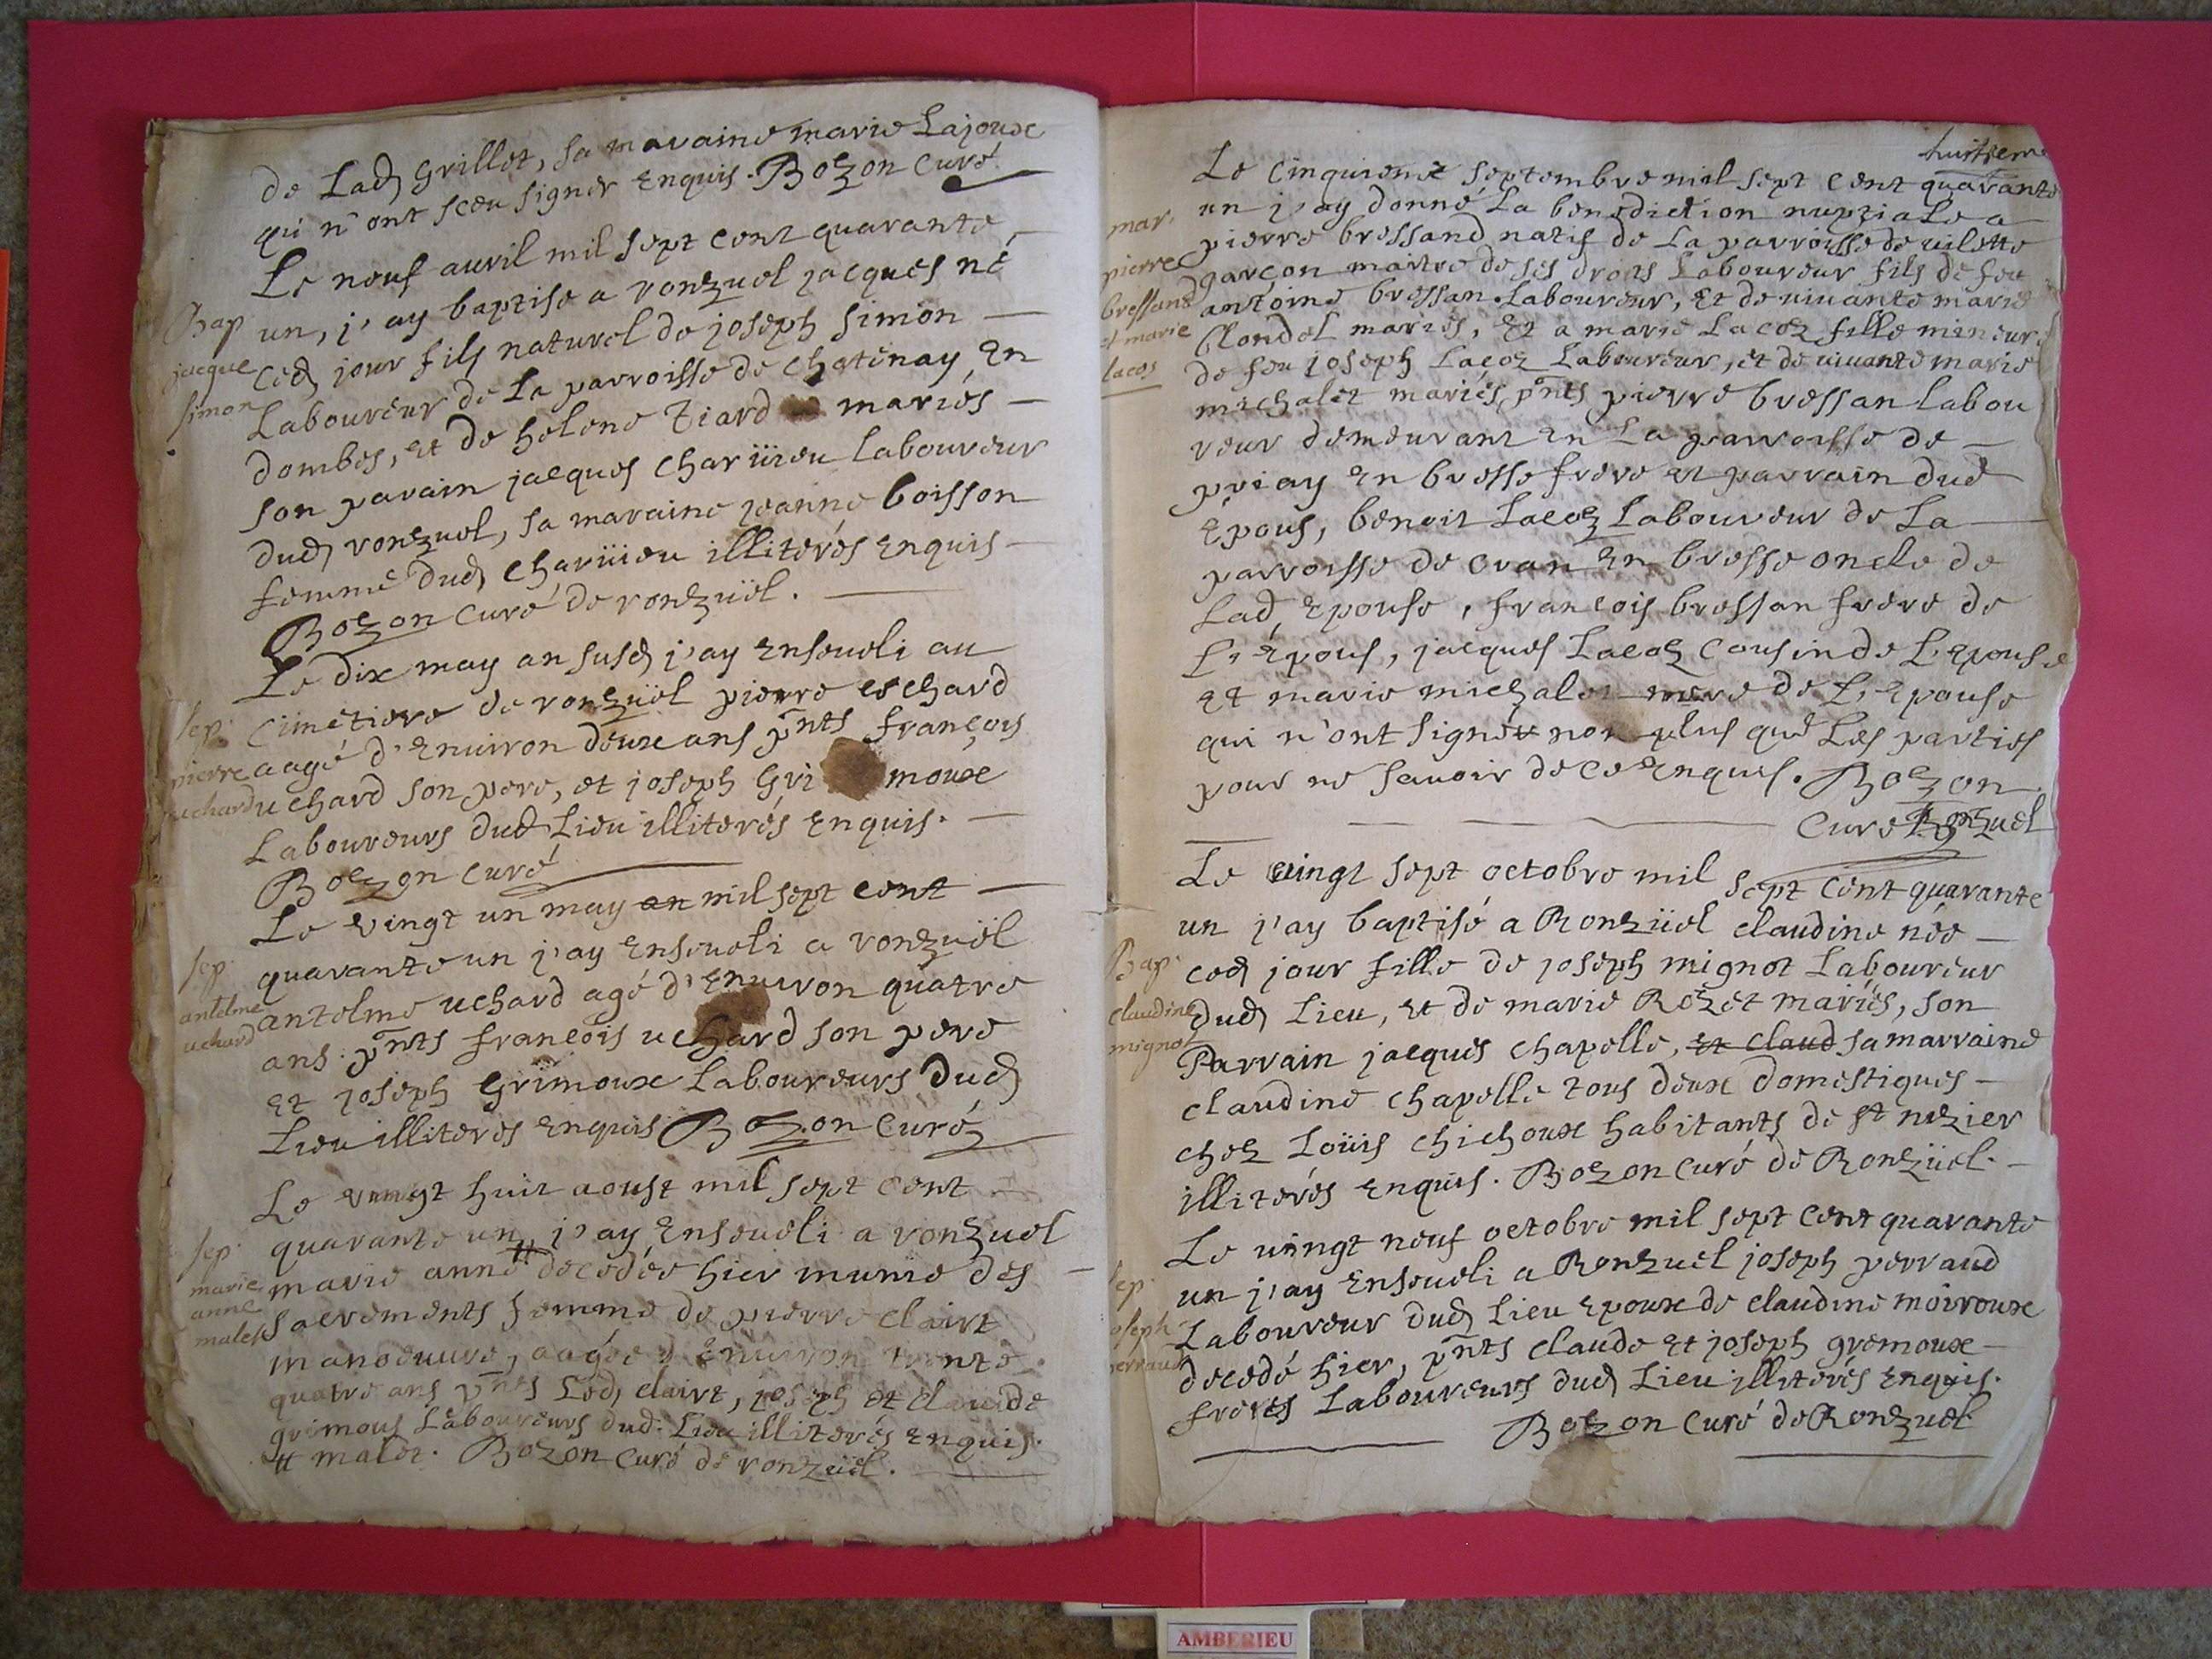 de Lad, Grillet, sa maraine marie Lajoux
qui n'ont sceu signer Enquis. Bozon Curé
Le neuf auril mil sept cent quarante
Bap
jacque
simon
un, j'ay baptise a ronzuel jacques né
Ced, jour fils naturel de joseph Simon
Laboureur de La parroisse de Chatenay, En
dombes, et de helene Tiard mariés
son parain jacques Charüieu laboureur
dud, ronzuel, sa maraine jeanne boisson
femme dud, Charüieu illiterés Enquis
Bozon Curé de ronzüel.
Le dix may an susd, j'ay Enseueli au
Sep.
pierre
uchard
Cimetiere de ronzüel pierre uchard
aagé d'Enuiron deux ans pnts françois
uchard son pere, et joseph Gri moux
Laboureurs dud, Lieu illiterés Enquis.
Bozon Curé
Le vingt un may an mil sept cent
Sep.
antelme
uchard
quarante un j'ay Enseueli a ronzuël
antelme uchard agé d'Enuiron quatre
ans. pnts françois uchard son pere
Et joseph Grimoux Laboureurs dud,
Lieu illiteres Enquis Bozon Curé
Le vingt huit aoust mil sept cent
Sep.
marie
anne
malet
quarante un j'ay Enseueli a ronzuel
marie anne # decedée hier munie des
Sacrements femme de pierre Clairt
manoeuure, aagée d'Enuiron trente
quatre ans pnts Led, Clairt, joseph et claude
grimoux Laboureurs dud. Lieu illiterés Enquis.
# malet. Bozon Curé de ronzüel.
huitieme
Le Cinquieme Septembre mil sept Cent quarante
mar.
pierre
bressand
et marie
lacos
un j'ay donné La benediction nuptiale a
pierre bressand natif de La parroisse de uilette
garçon maitre de ses droits Laboureur fils de feu
antoine bressan. Laboureur, Et de uiuante marie
Clondel mariés, Et a marie Lacoz fille mineure
de feu joseph Lacoz Laboureur, et de uiuante marie
michalet mariés, pnts pierre bressan labou
reur demeurant En La parroisse de
priay En bresse frere et parrain dud
Epous, benoit Lacoz Laboureur de La
parroisse de Cran En bresse oncle de
Lad, Epouse, françois bressan frere de
L'Epous, jacques Lacoz Cousin de L'Epouse
Et marie michalet mere de L'Epouse
qui n'ont signé non plus que Les parties
pour ne Sauoir de Ce Enquis. Bozon
Curé Ronzuel
Le vingt sept octobre mil sept cent quarante
Bap.
claudine
mignot
un j'ay baptisé a Ronzüel claudine née
Ced, jour fille de joseph mignot Laboureur
dud, Lieu, et de marie Rozet mariés, son
Parrain jacques Chapelle, et claud sa marraine
claudine Chapelle tous deux domestiques
chez Loüis Chichoux habitants de st nizier
illiterés Enquis. Bozon Curé de Ronzüel.
Le uingt neuf octobre mil sept Cent quarante
sep.
joseph
perraud
un j'ay Enseueli a Ronzuel joseph perraud
Laboureur dud, Lieu Epoux de claudine moiroux
decedé hier, pnts claude Et joseph gremoux
freres Laboureurs dud, Lieu illiterés Enquis.
Bozon Curé de Ronzuel
AMBERIEU